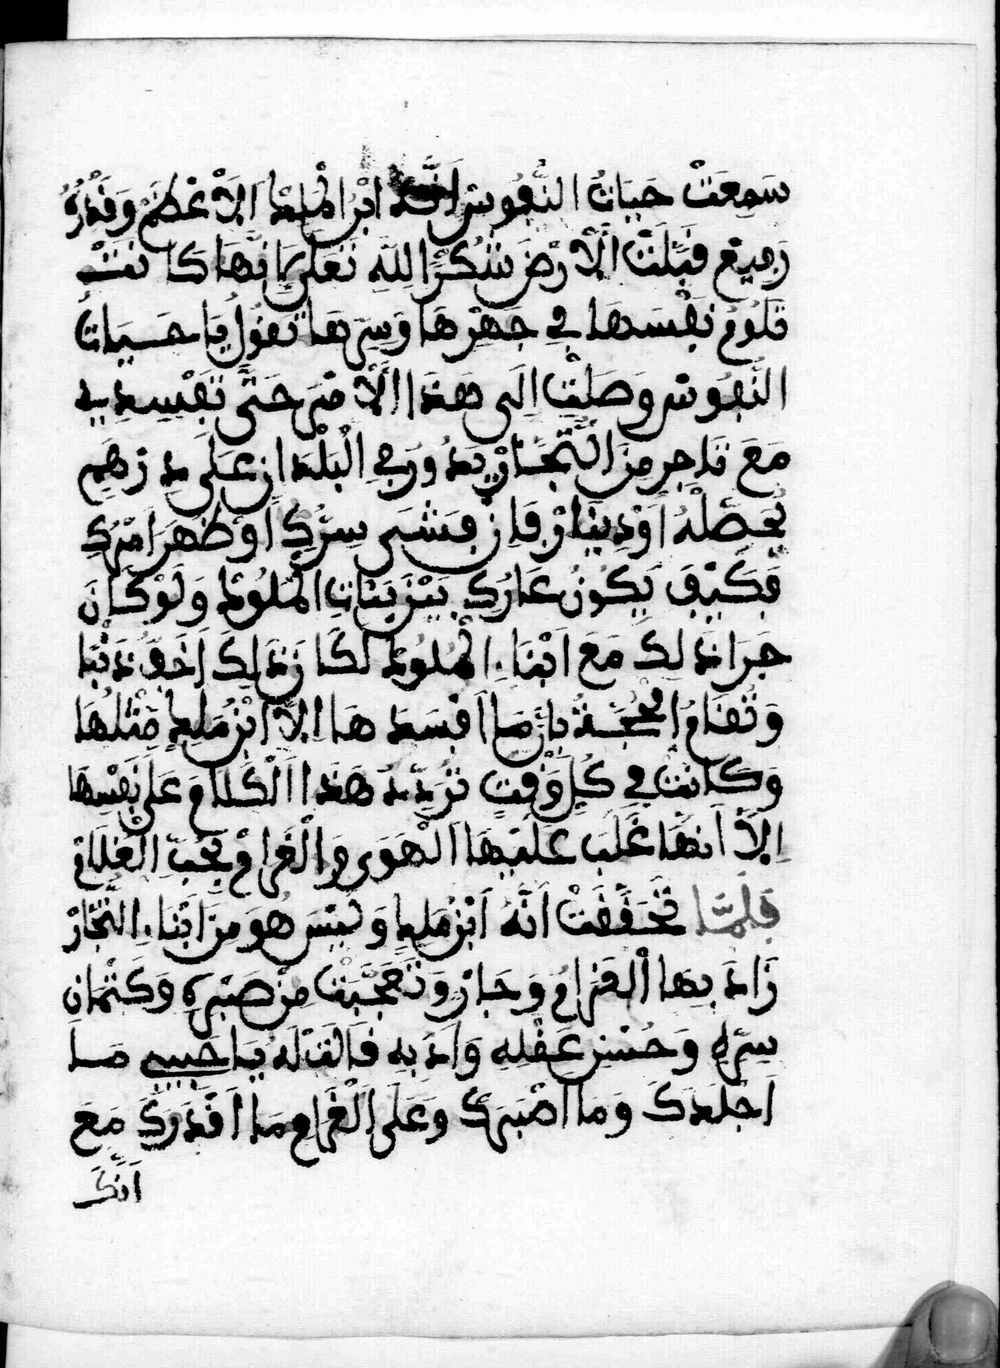 سَمِعَتْ حَيَاتُ النُّفُوسْ اَنَّهُ ابْنَ الْمَلِكْ اِلَاعْظَمْ وَقَدْرُهُ
رَفِيعْ قَبَّلَتْ اَلْاَرْضَ شُكْرًا لِلَّهِ تَعَلَى لِاَنَّهَا كَانَتْ
تَلُومُ نَفْسَهَا فِي جَهْرِهَا وَسِرِّهَا تَقُولُ يَا حَيَاتُ
النُّفُوسْ وَصَلْتِ اِلَى هَذَا اَلْاَمْرِ حَتَّى تَفْسِدِيهِ
مَعَ تَاجِرِ مِنَ اَلتُّجَّارْ يَدُورْ فِي الْبُلْدَانْ عَلَى دِرْهَمِ
يُحَصِّلْهُ اَوْ دِينَارْ فَاِنْ فَشَى سِرُّكِ اَوْ ظَهَرَ اَمْرُكِ
فَكَيْفَ يَكُونُ عَارُكِ بَيْنَ بَنَاتِ الْمُلُوكْ وَلَوْ كَانَ
جَرَا ذَلِكَ مَعَ اَبْنَاءِ الْمُلُوكْ لَكَانَ ذَلِكَ اَخَفُّ ذَنْبًا
وَتُقَامُ الْحُجَّةُ بِاَنْ مَا اَفْسَدَهَا اِلَّا ابْنُ مَلِكٍ مِثْلُهَا
وَكَانَتْ فِي كُلِّ وَقْتِ تُرَدِّدُ هَذَا اَلْكَلَامْ عَلَى نَفْسِهَا
اِلَّا اَنَّهَا غَلَبَ عَلَيْهَا اَلْهَوَى وَالْغَرَامْ بِحُبِّ الْغُلَامْ
فَلَمَّا تَحَقَّقَتْ اَنَّهُ اَبْنُ مَلِكٍ وَلَيْسَ هُوَ مِنْ اَبْنَاءِ التُّجَّارْ
زَادَ بِهَا اَلْغَرَامْ وَحَارْ وَتَعَجَّبَتْ مِنْ صَبْرِهِ وَكِتْمَانِ
سِرِّهِ وَحُسْنِ عَقْلِهِ وَاَدَبِهِ فَقَالَتْ لَهُ يَا حَبِيبِي مَا
اَجْلَدَكَ وَمَا اَصْبَرَكَ وَعَلَى الْغَرَامِ مَا اَقْدَرَكَ مَعَ
اَنَّكَ